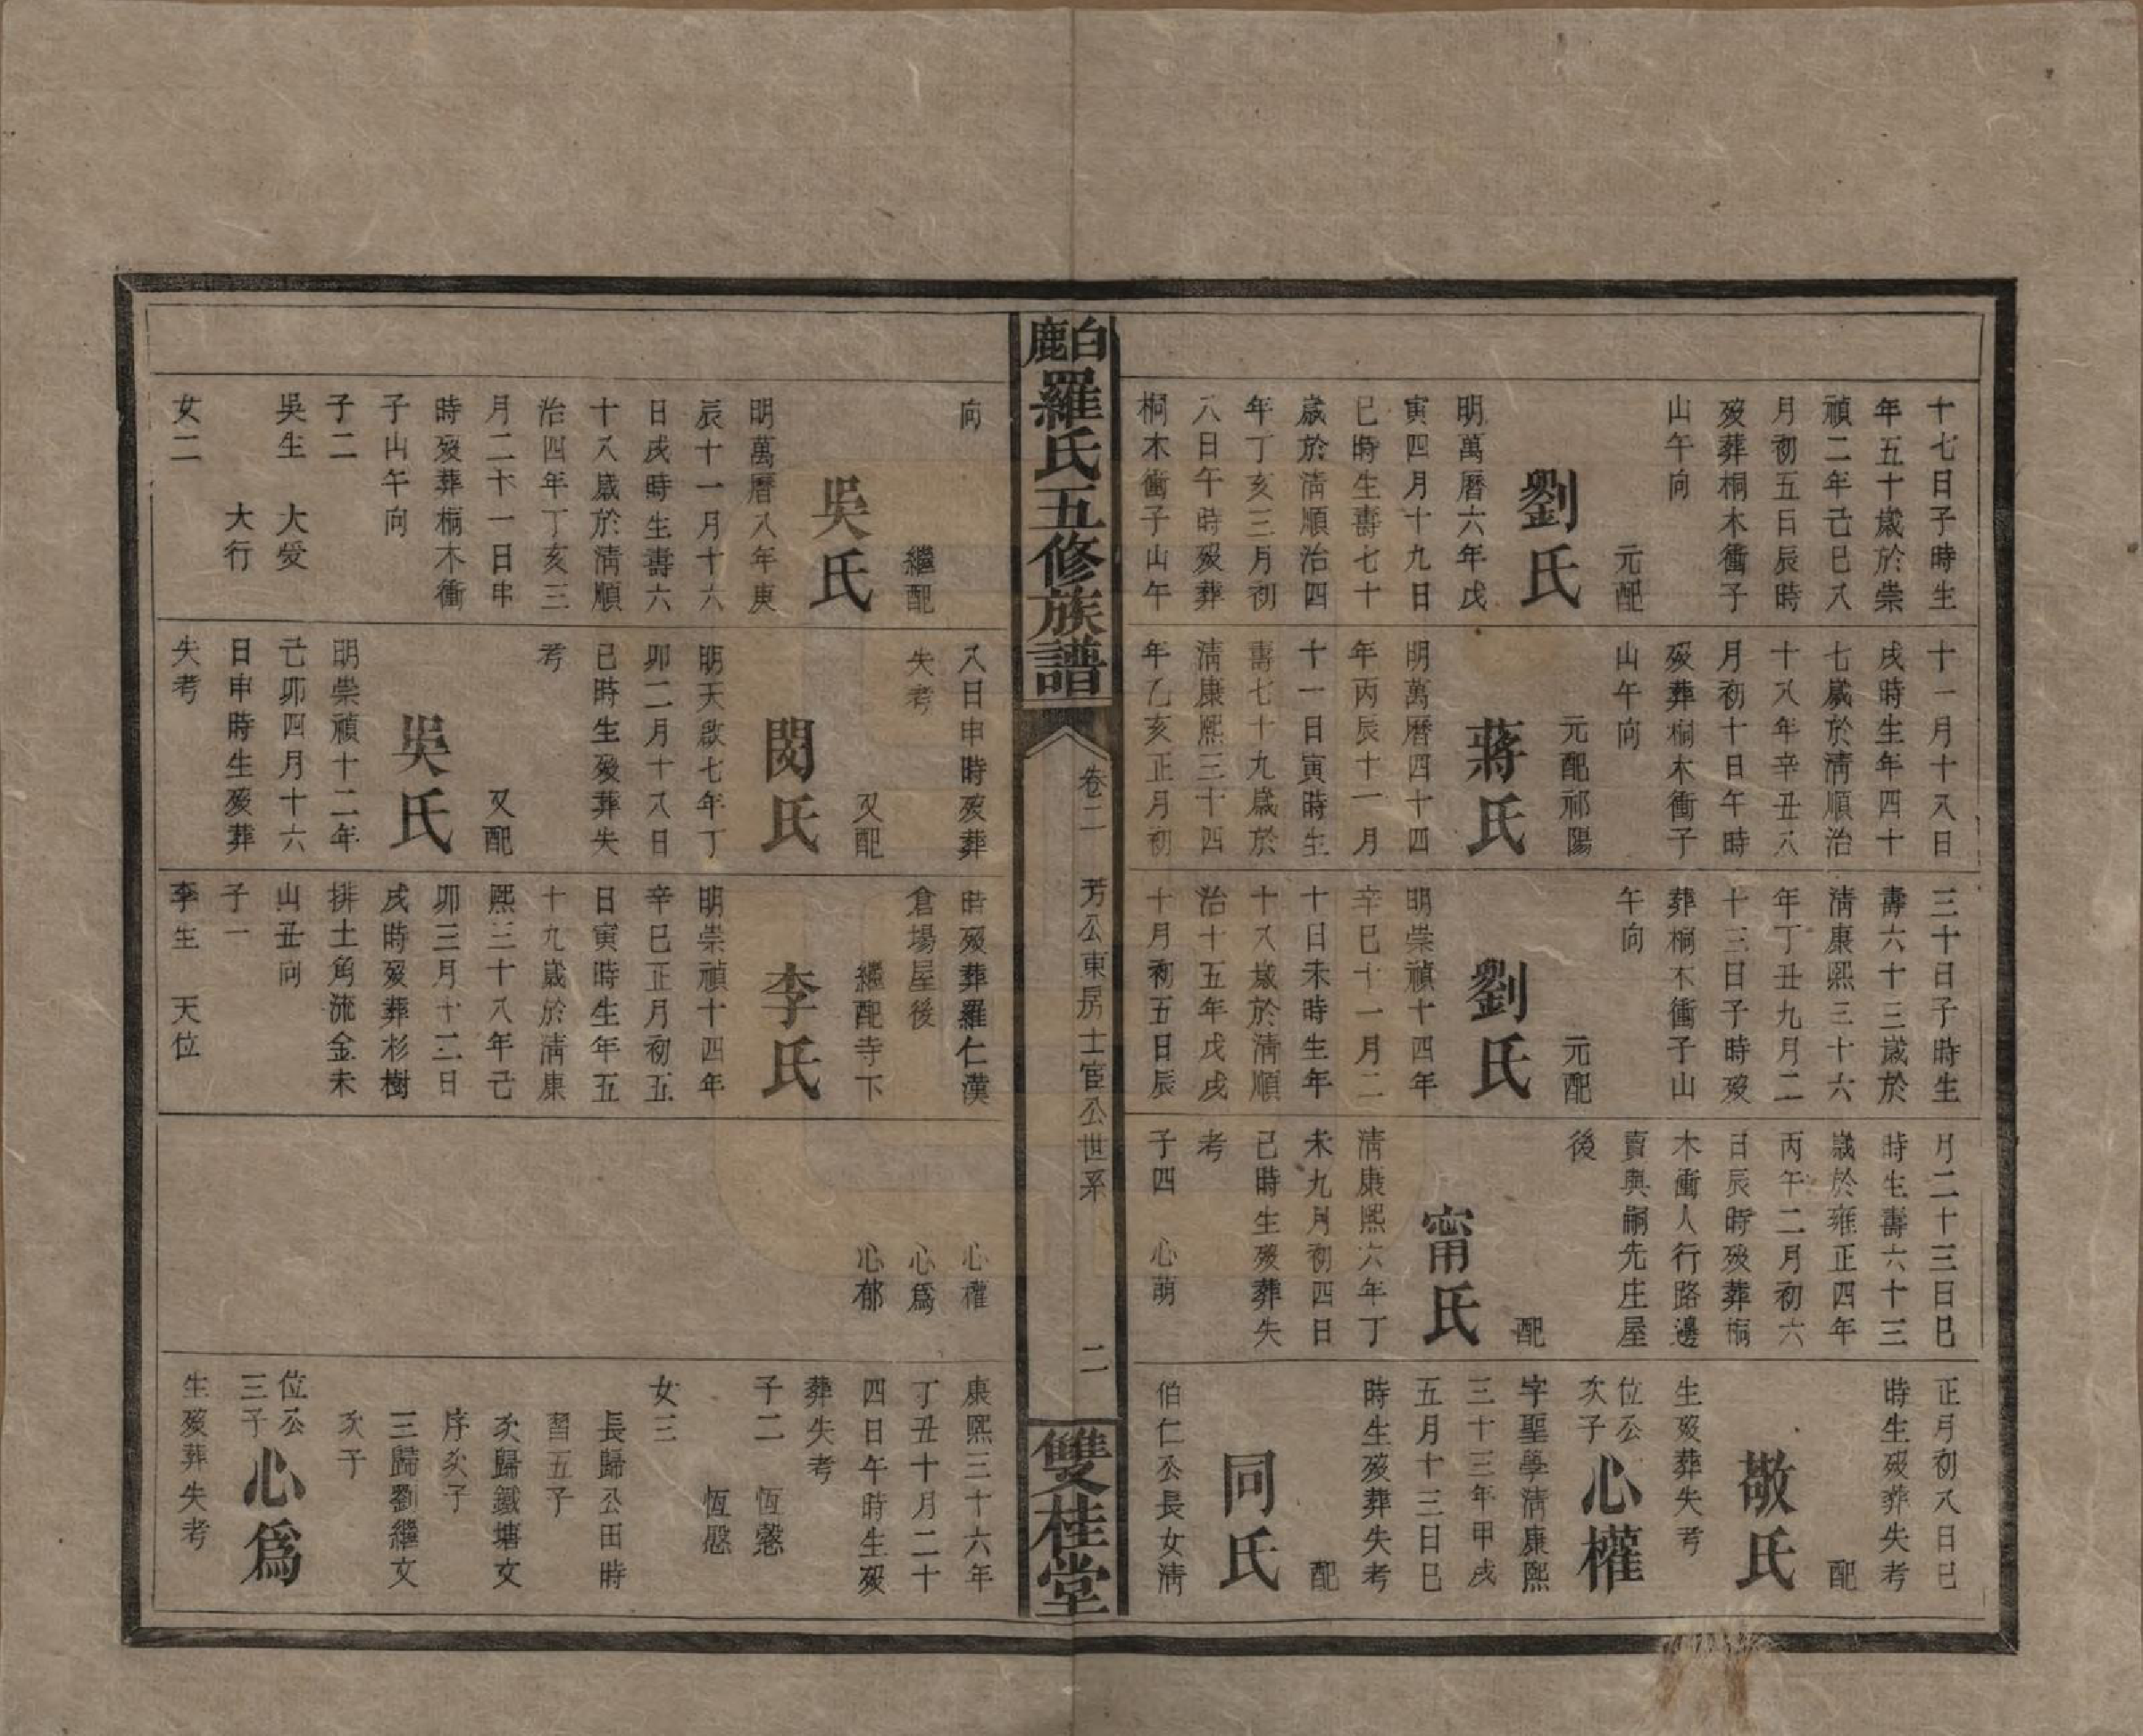 十七日子時生
年五十歲於崇
禎二年己巳八
月初五日辰時
歿葬桐木衝子
山午向
元配
劉氏
明萬曆六年戊
寅四月十九日
巳時生壽七十
歲於淸順治四
年丁亥三月初
八日午時歿葬
桐木衝子山午
十一月十八日
戌時生年四十
七歲於淸順治
十八年辛丑八
月初十日午時
歿葬桐木衝子
山午向
元配祁陽
蔣氏
明萬曆四十四
年丙辰十一月
十一日寅時生
壽七十九歲於
淸康熙三十四
年乙亥正月初
三十日子時生
壽六十三歲於
淸康熙三十六
年丁丑九月二
十三日子時歿
葬桐木衝子山
午向
元配
劉氏
明崇禎十四年
辛巳十一月二
十日未時生年
十八歲於淸順
治十五年戊戌
十月初五日辰
月二十三日巳
時生壽六十三
歲於雍正四年
丙午二月初六
日辰時歿葬桐
木衝人行路邊
賣與嗣先庄屋
後
配
甯氏
淸康熙六年丁
未九月初四日
巳時生歿葬失
考
子四 心萌
正月初八日巳
時生歿葬失考
配
敬氏
生歿葬失考
位公次子 心權
字聖學淸康熙
三十三年甲戌
五月十三日巳
時生歿葬失考
配
同氏
伯仁公長女淸
白鹿羅氏五修族譜
卷二 芳公東房士官公世系
二
雙桂堂
向
繼配
吳氏
明萬曆八年庚
辰十一月十六
日戌時生壽六
十八歲於淸順
治四年丁亥三
月二十一日申
時歿葬桐木衝
子山午向
子二
吳生 大愛
大行
女二
八日申時歿葬
失考
又配
閔氏
明天啟七年丁
卯二月十八日
巳時生歿葬失
考
又配
吳氏
明崇禎十二年
己卯四月十六
日申時生歿葬
失考
時歿葬羅仁漢
倉場屋後
繼配寺下
李氏
明崇禎十四年
辛巳正月初五
日寅時生年五
十九歲於淸康
熙三十八年己
卯三月十二日
戌時歿葬杉樹
排土角流金未
山丑向
子一
李生 天位
心權
心爲
心郁
康熙三十六年
丁丑十月二十
四日午時生歿
葬失考
子二 恆慤
恆愿
女三
長歸公田時
習五子
次歸鐵塘文
序次子
三歸劉繼文
次子
位公三子 心爲
生歿葬失考